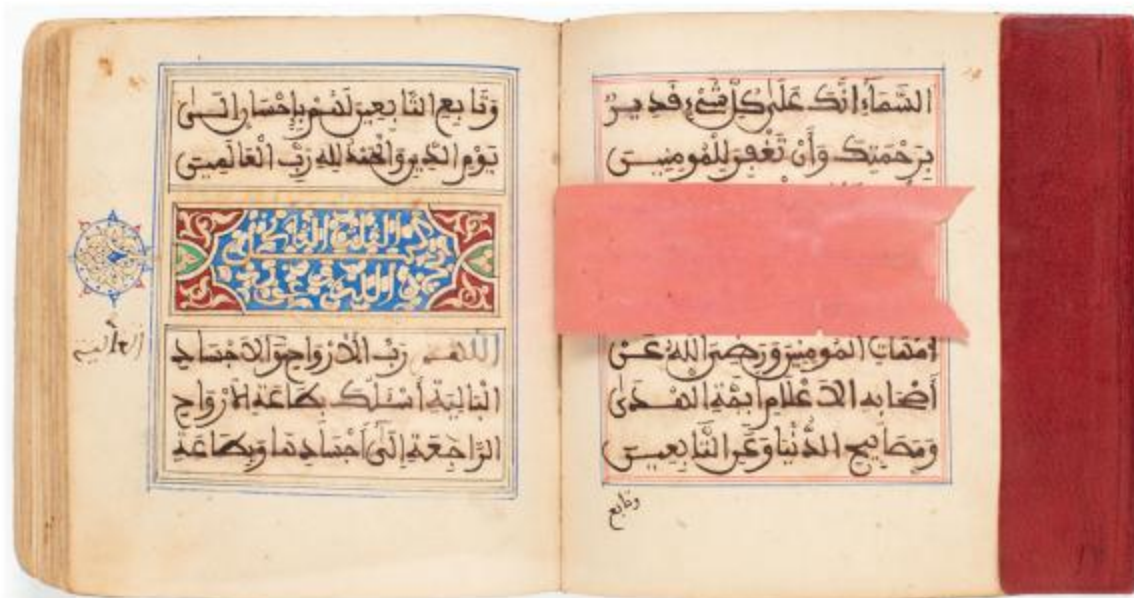 السَّمَآءِ إنَّكَ عَلَىٰ كُلِّ شَيْءٍ قَدِيرٌ
بِرَحْمَتِكَ وَأَنْ تَغْفِرَ لِلْمُومِنِينَ
أمهات المُومِنِينَ وَرَضِيَ اللَّهُ عَنْ
أَصْحَابِهِ الاَعْلَامِ أَيِمَّةِ الْهُدَىٰ
وَمَصَابِيحِ الدُّنْيَا وَعَنِ التَّابِعِينَ
وتابع
وَتَابِعِ التَّابِعِينَ لَهُمْ بِإِحْسَانٍ إلَىٰ
يَوْمِ الدِّينِ وَالْحَمْدُ لِلهِ رَبِّ الْعَالَمِينَ
اللَّهُمَّ رَبَّ الاَرْوَاحِ وَالاَجْسَادِ
الْبَالِيَةِ أَسْئَلُكَ بِطَاعَةِ الاَرْوَاحِ
الرَّاجِعَةِ إِلَىٰ أَجْسَادِهَا وَبِطَاعَةِ